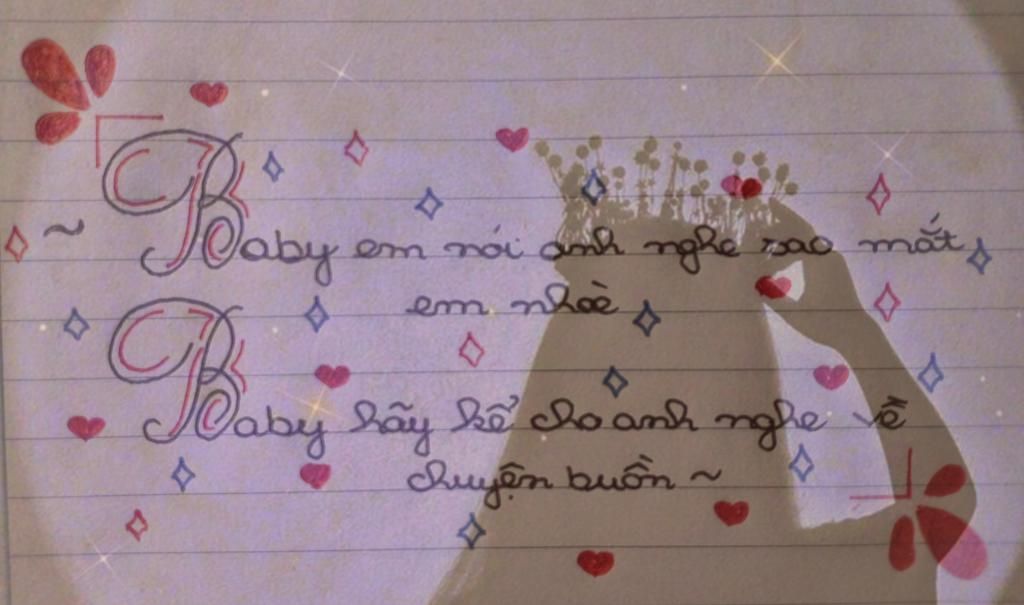 ~ Baby em nói anh nghe sao mắt
em nhoè
Baby hãy kể cho anh nghe về
chuyện buồn ~